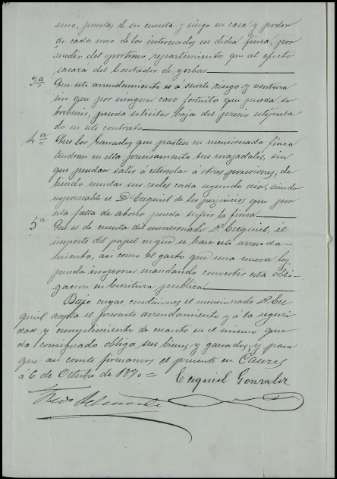 una, puestas de su cuenta y riesgo en casa y poder
de cada uno de los interesados en dicha finca, por
medio del oportuno repartimiento que al efecto
sacará del Contador de yerbas
3ª Que este arrendamiento es a suerte, riesgo y ventura
sin que por ningun caso fortuito que pueda so
brevenir, pueda solicitar baja del precio estipula
do en este contrato
4ª Que los ganados que pasten en mencionada finca
tendran en ella precisamente sus majadales, sin
que puedan salir a otras posesiones, de
biendo mudar sus redes cada segundo dia, siendo
responsable el D. Ezequiel de los perjuicios que por
esta falta de abono pueda sufrir la finca
5ª Que es de cuenta del mencionado D. Ezequiel, el
importe del papel en que se hace este arrenda
miento, asi como el gasto que una vez
pueda irrogarse mandando convertir esta obli
gacion en escritura publica
Bajo cuyas condiciones el mencionado D. Eze
quiel acepta el presente arrendamiento y a la seguri
dad y cumplimiento de cuanto en el mismo que
da consignado obliga sus bienes y ganados, y para
que asi conste firmamos el presente en Cáceres
a 6 de Octubre de 1870=
Ezequiel Gonzalez